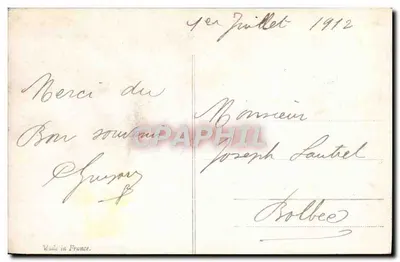 1er Juillet 1912
Merci du
Bon souvenir
Monsieur
Joseph Lautrel
Bolbec
CPAPHIL
Made in France.